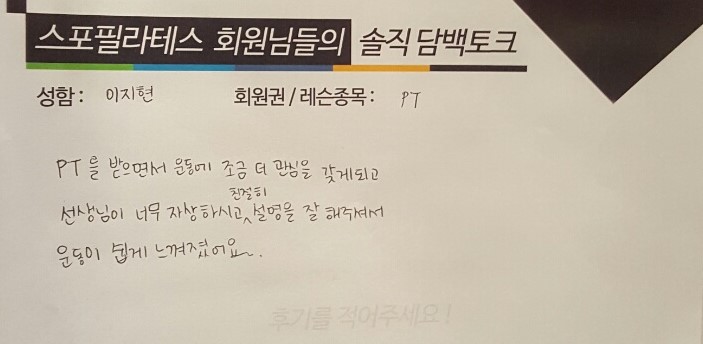 스포필라테스 회원님들의 솔직 담백토크
성함 : 이지현 회원권 / 레슨종목 : PT
PT를 받으면서 운동에 조금 더 관심을 갖게되고
친절히
선생님이 너무 자상하시고, 설명을 잘 해주셔서
운동이 쉽게 느껴졌어요.
후기를 적어주세요!